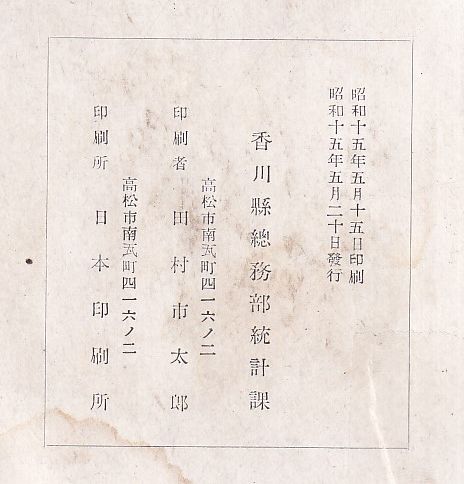 昭和十五年五月十五日印刷
昭和十五年五月二十日發行
香川縣總務部統計課
高松市南瓦町四一六ノ二
印刷者 田村市太郎
高松市南瓦町四一六ノ二
印刷所 日本印刷所